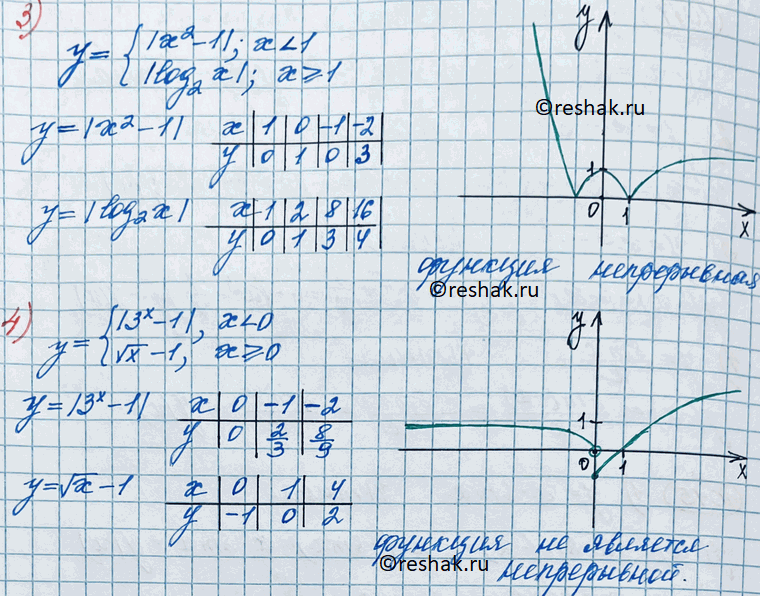 3)
y = { |x² - 1|; x < 1
|log₂ x|; x ≥ 1
y = |x² - 1|
x | 1 | 0 | -1 | -2
y | 0 | 1 | 0 | 3
y = |log₂ x|
x | 1 | 2 | 8 | 16
y | 0 | 1 | 3 | 4
y
©reshak.ru
1
0 1 x
функция непрерывная
©reshak.ru
4)
y = { |3ˣ - 1|, x < 0
√x - 1, x ≥ 0
y = |3ˣ - 1|
x | 0 | -1 | -2
y | 0 | 2/3 | 8/9
y = √x - 1
x | 0 | 1 | 4
y | -1 | 0 | 2
y
1
0 1 x
функция не является
непрерывной.
©reshak.ru